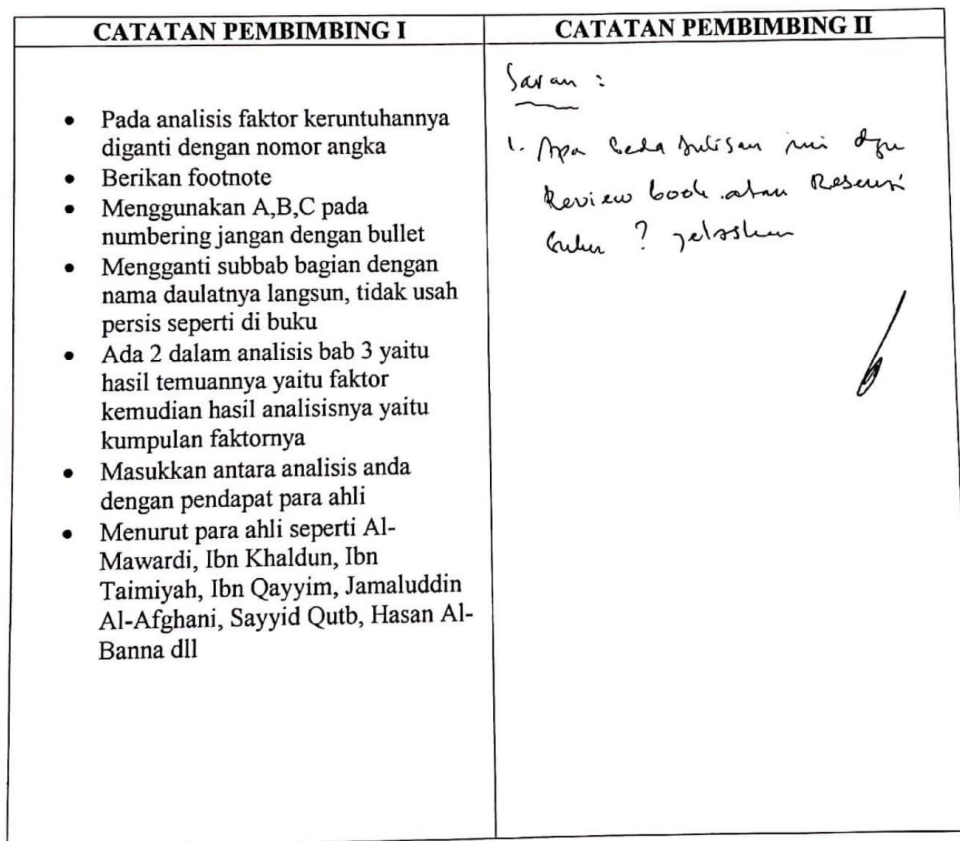 CATATAN PEMBIMBING I
• Pada analisis faktor keruntuhannya
diganti dengan nomor angka
• Berikan footnote
• Menggunakan A,B,C pada
numbering jangan dengan bullet
• Mengganti subbab bagian dengan
nama daulatnya langsun, tidak usah
persis seperti di buku
• Ada 2 dalam analisis bab 3 yaitu
hasil temuannya yaitu faktor
kemudian hasil analisisnya yaitu
kumpulan faktornya
• Masukkan antara analisis anda
dengan pendapat para ahli
• Menurut para ahli seperti Al-
Mawardi, Ibn Khaldun, Ibn
Taimiyah, Ibn Qayyim, Jamaluddin
Al-Afghani, Sayyid Qutb, Hasan Al-
Banna dll
CATATAN PEMBIMBING II
Saran :
1. Apa beda tulisan ini dgn
Review book atau Resensi
buku ? jelaskan